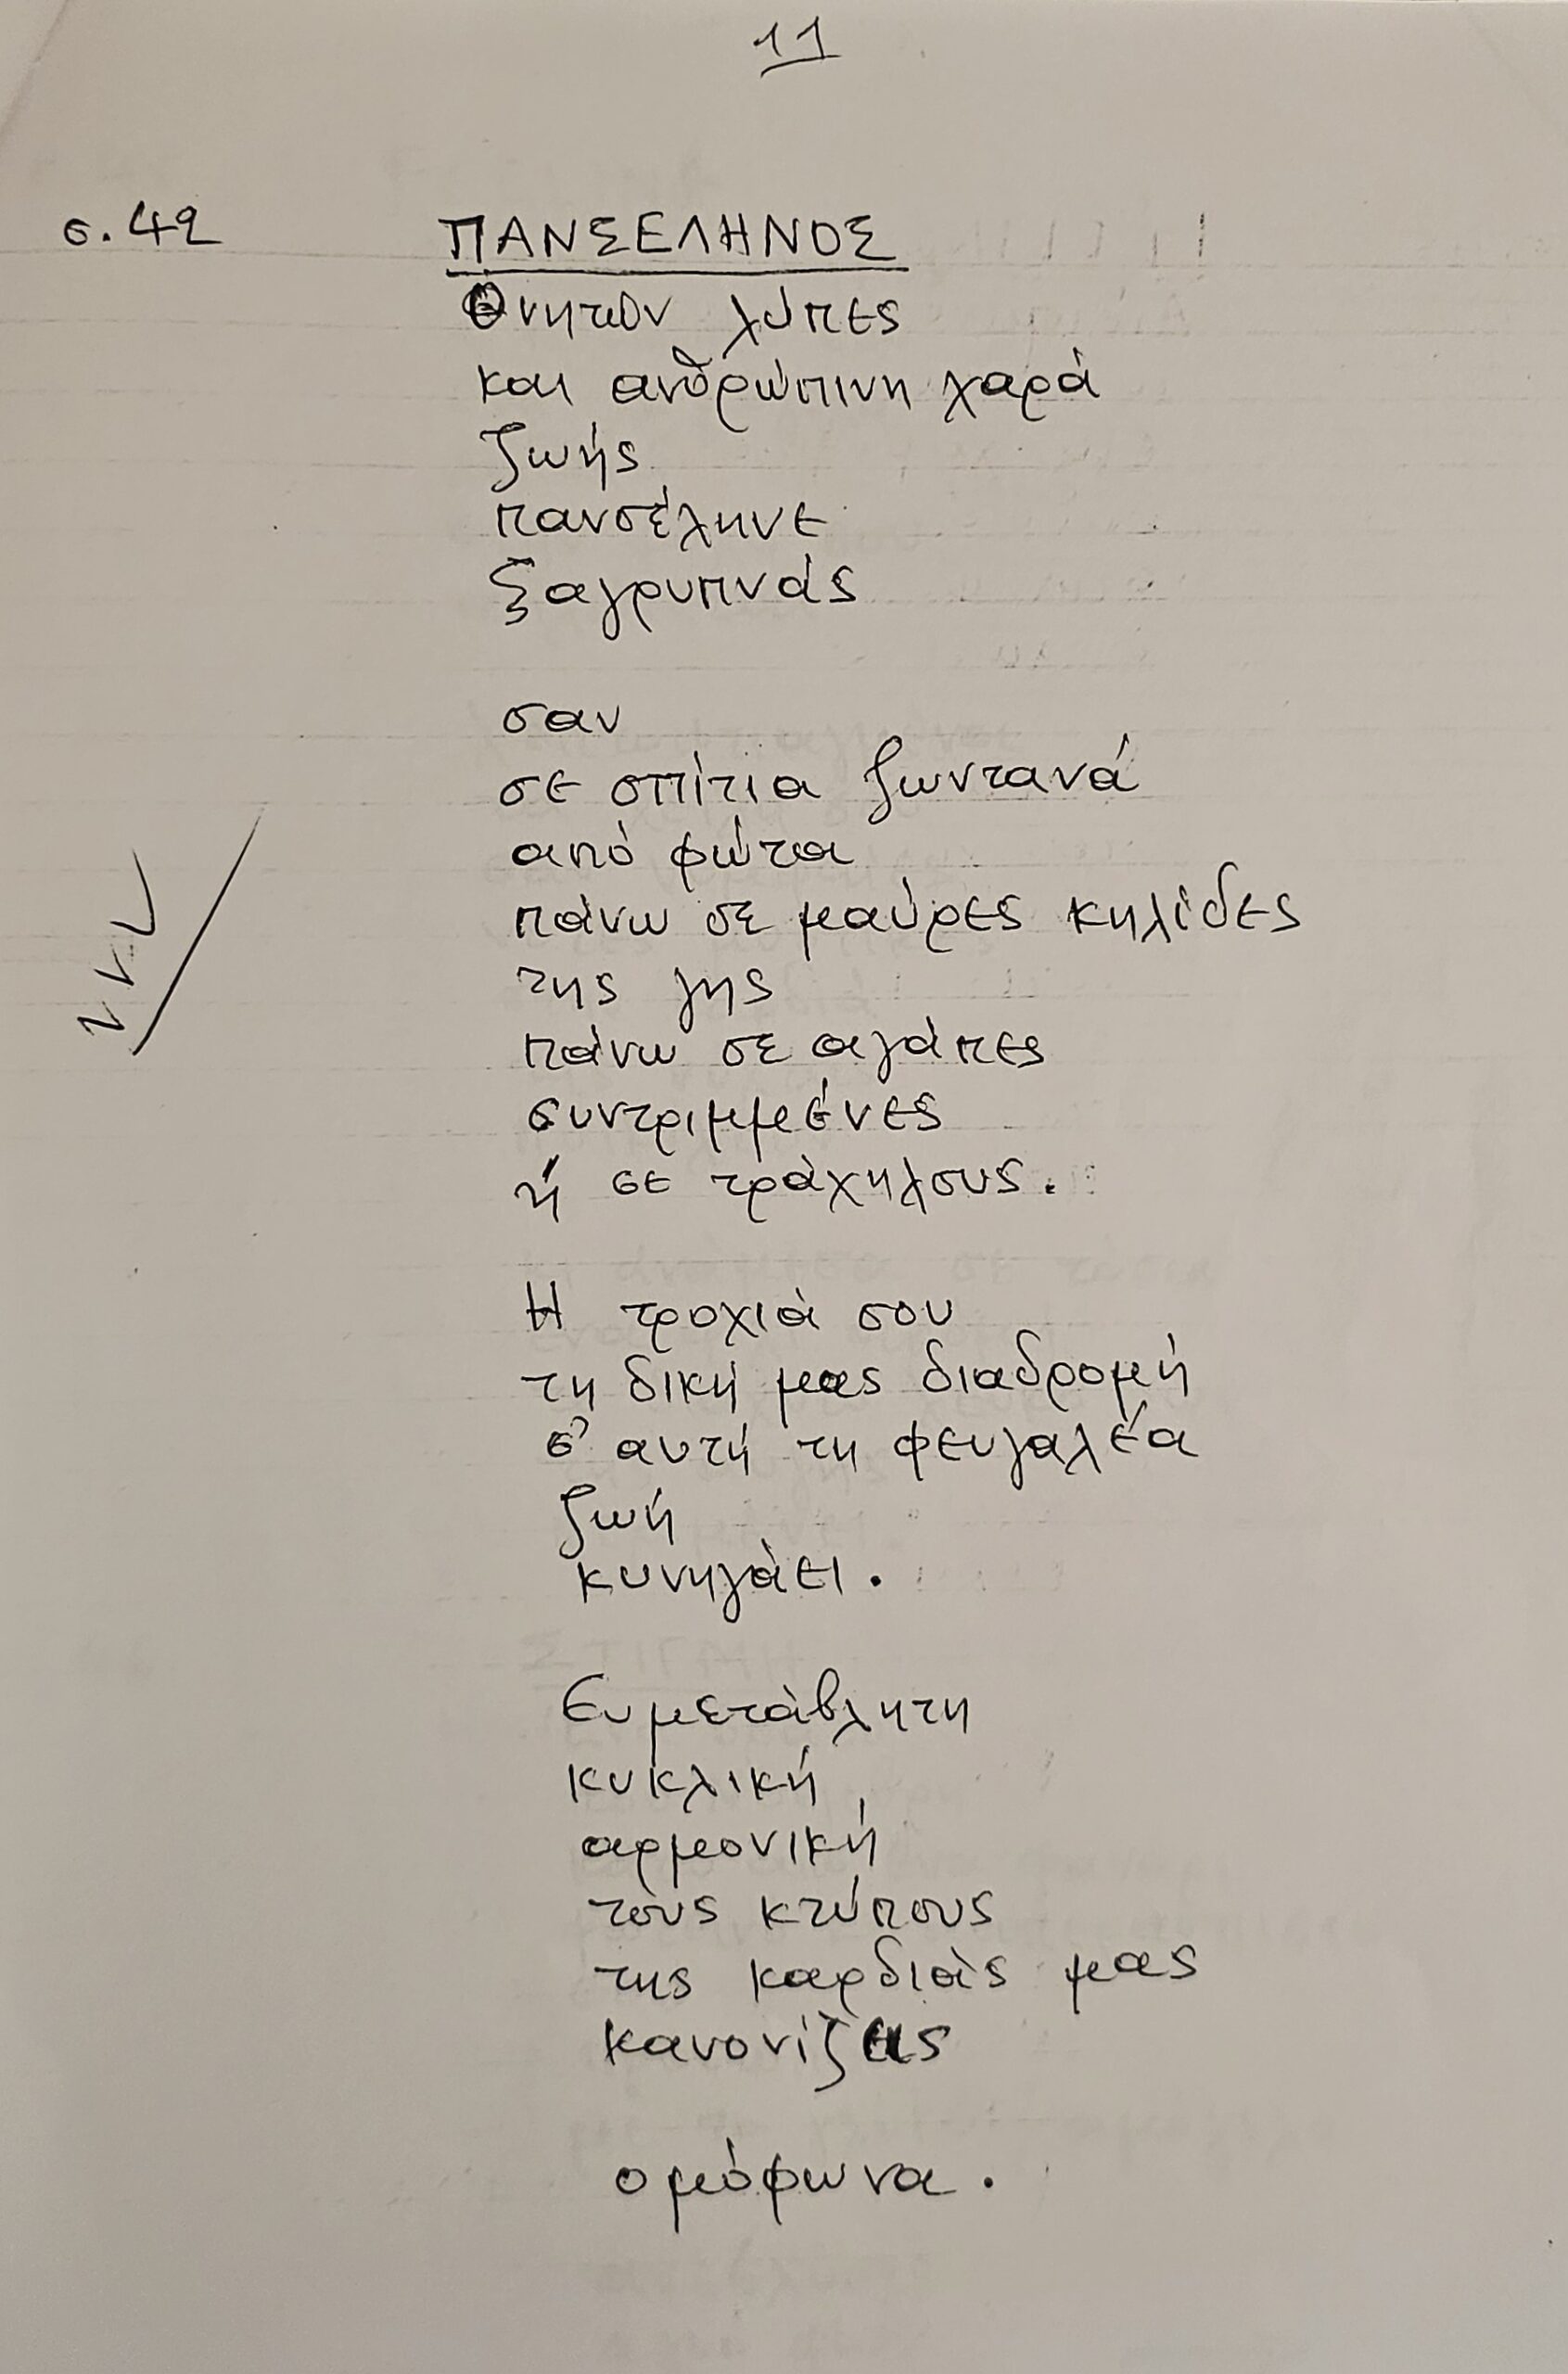 11
σ. 42
ΠΑΝΣΕΛΗΝΟΣ
Θνητών λύπες
και ανθρώπινη χαρά
ζωής
πανσέληνε
ξαγρυπνάς
σαν
σε σπίτια ζωντανά
από φώτα
πάνω σε μαύρες κηλίδες
της γης
πάνω σε αγάπες
συντριμμένες
ή σε τράχηλους.
Η τροχιά σου
τη δική μας διαδρομή
σ' αυτή τη φευγαλέα
ζωή
κυνηγάει.
Ευμετάβλητη
κυκλική
αρμονική
τους κτύπους
της καρδιάς μας
κανονίζεις
ομόφωνα.